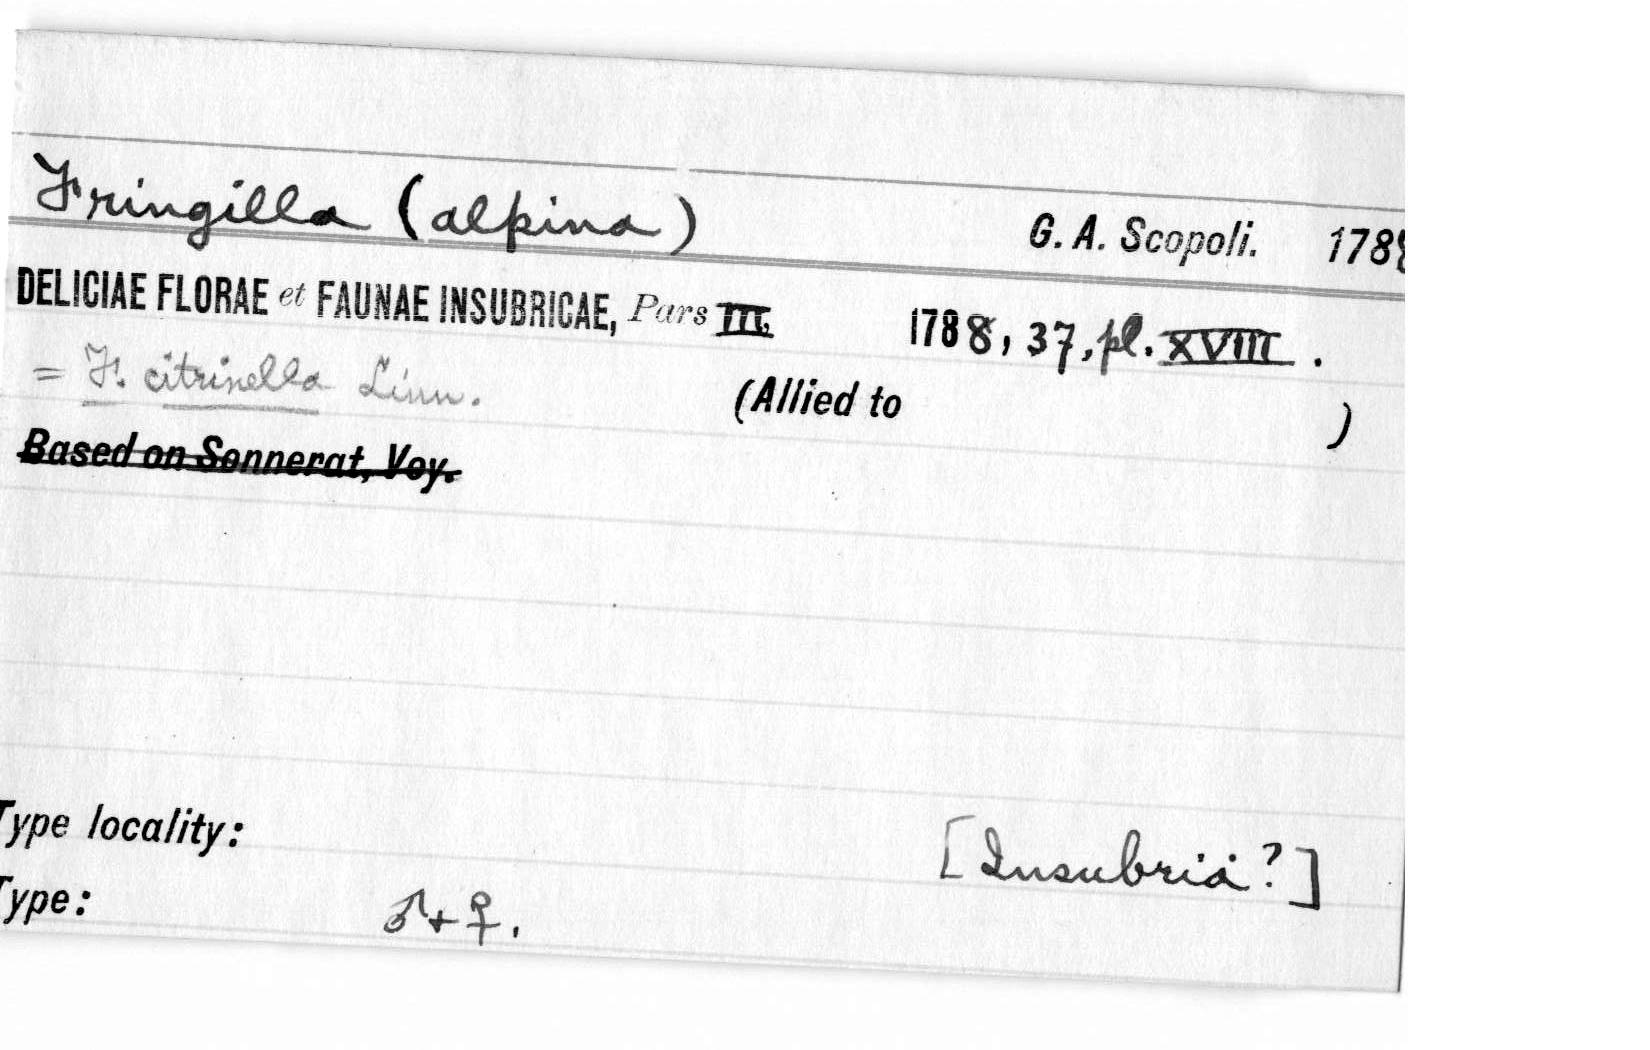 Fringilla (alpina) G. A. Scopoli. 1788
DELICIAE FLORAE et FAUNAE INSUBRICAE, Pars III, 1788, 37, pl. XVIII.
= F. citrinella Linn. (Allied to )
Based on Sonnerat, Voy.
Type locality: [Insubria?]
Type: ♂ + ♀.